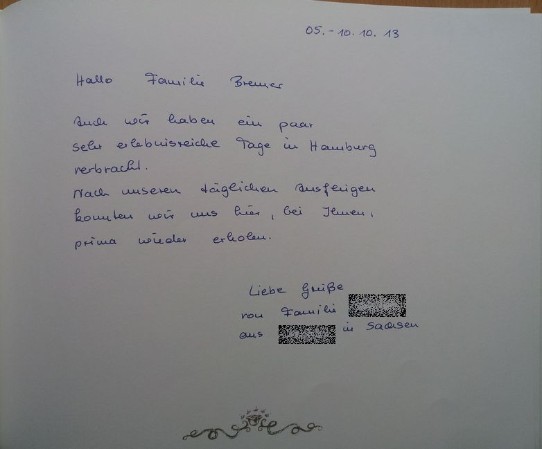 05. - 10.10.13
Hallo Familie Bremer
Auch wir haben ein paar
sehr erlebnisreiche Tage in Hamburg
verbracht.
Nach unseren täglichen Ausflügen
konnten wir uns hier, bei Ihnen,
prima wieder erholen.
Liebe Grüße
von Familie
aus in Sachsen